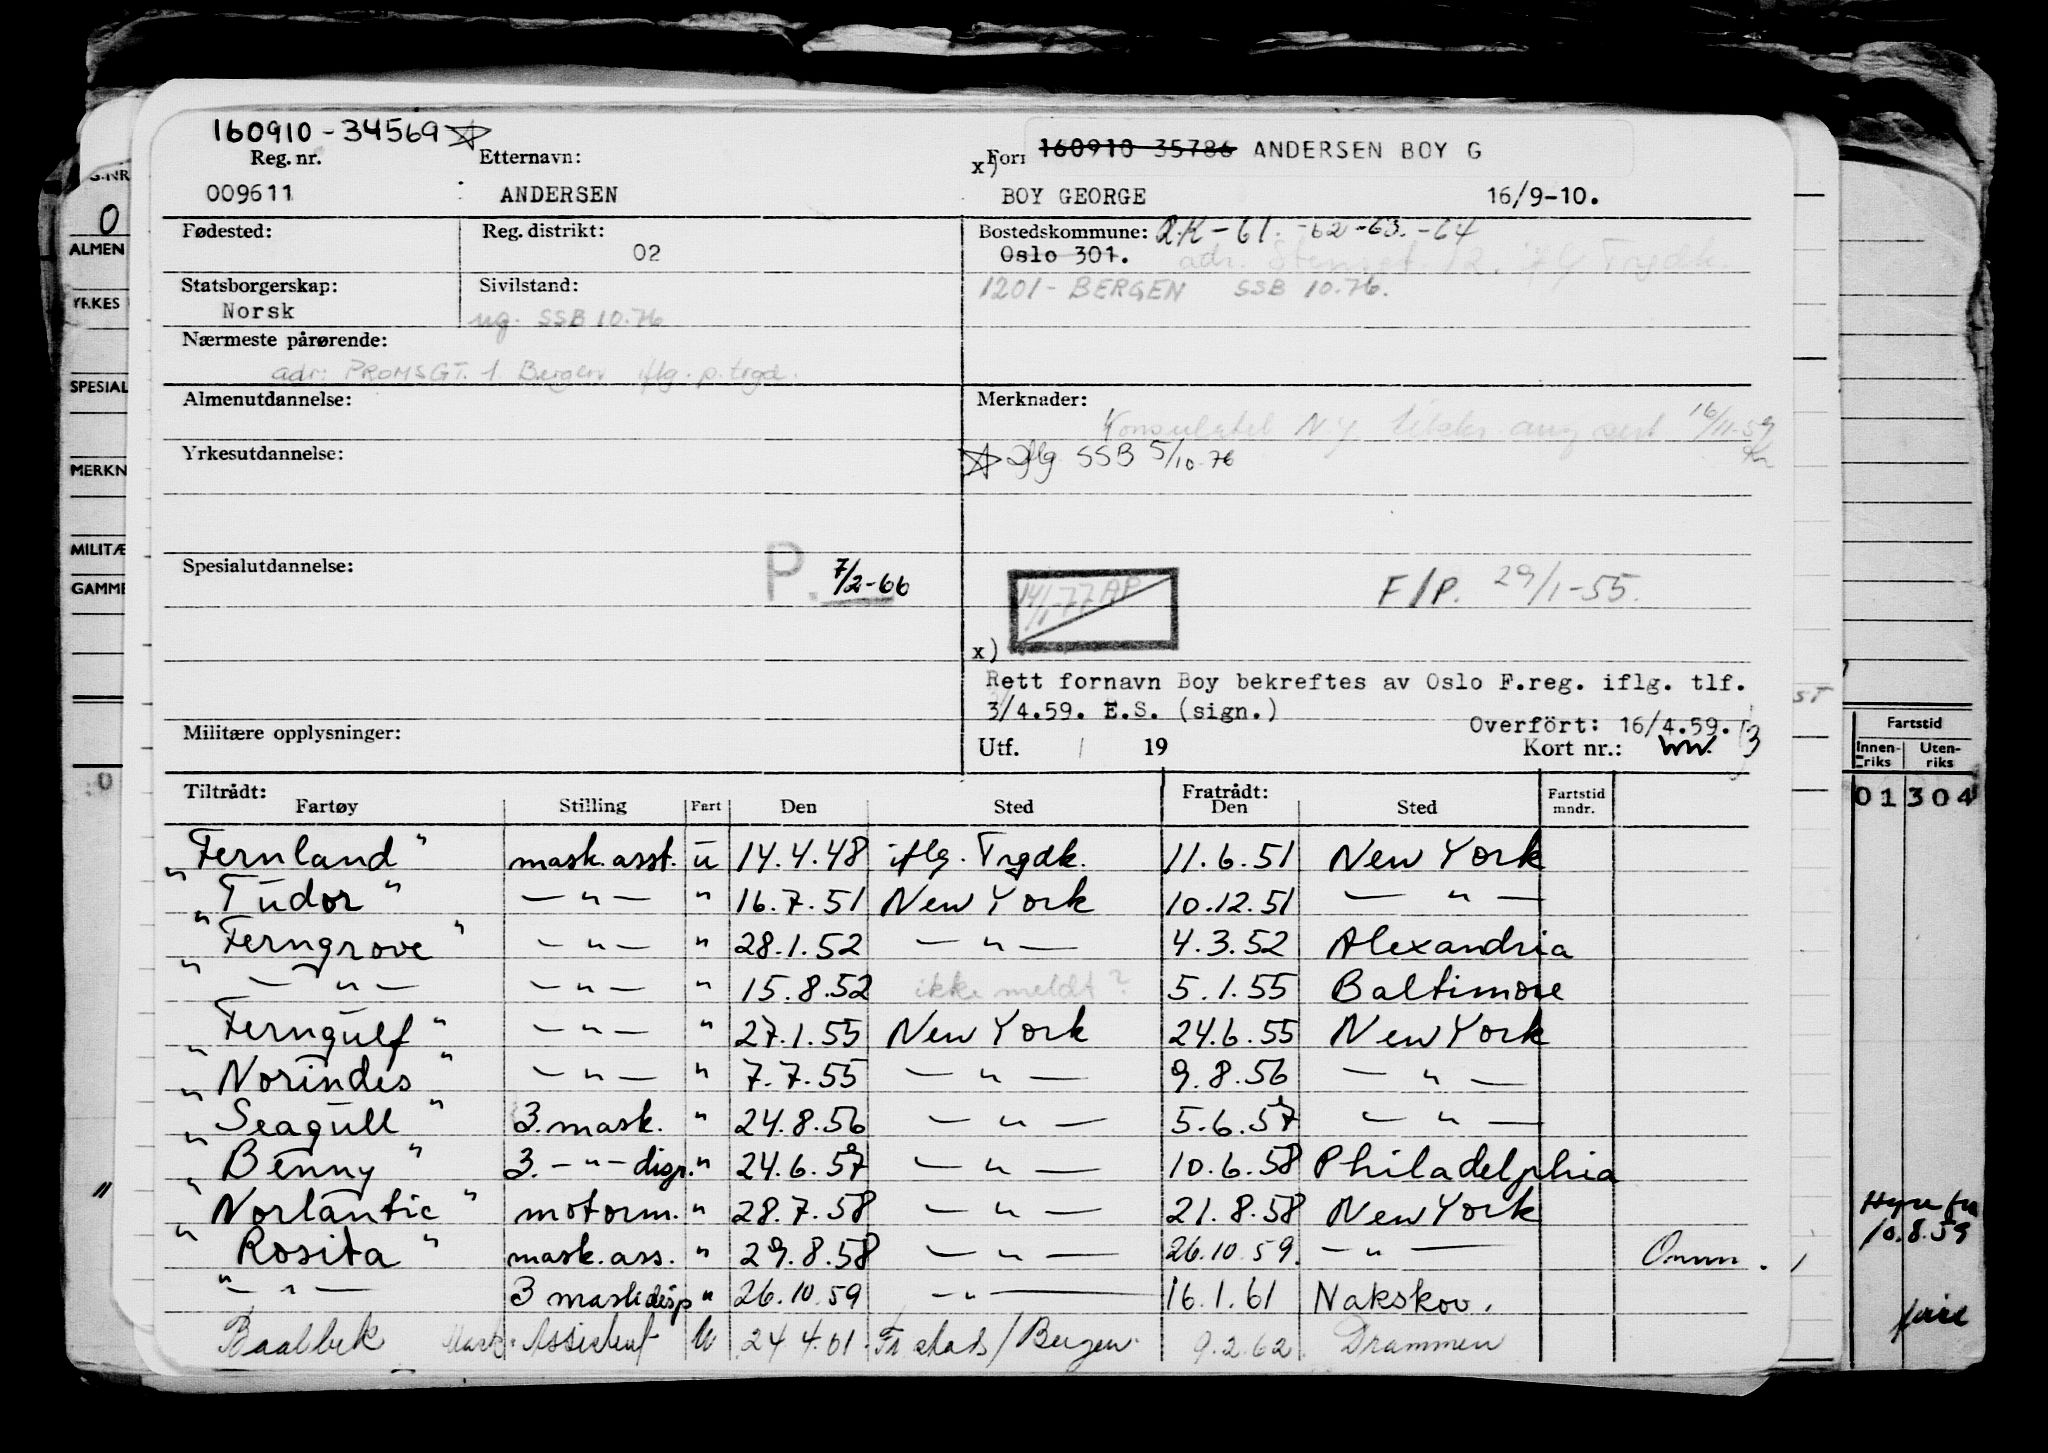 160910-34569 ☆
Reg. nr. Etternavn: x) Forn 160910 35786 ANDERSEN BOY G
009611 ANDERSEN BOY GEORGE 16/9-10.
Fødested: Reg. distrikt: Bostedskommune: -61. -62 -63. -64
02 Oslo 301. adr.
Statsborgerskap: Sivilstand: 1201 - BERGEN SSB 10.76.
Norsk ug. SSB 10.76
Nærmeste pårørende:
adr: PROMSGT. 1 Bergen iflg. p. trgd.
Almenutdannelse: Merknader:
Konsulatet N.Y. 16/11-59
Yrkesutdannelse: ☆ Iflg. SSB 5/10-76
Spesialutdannelse: P. 7/2-66 14/1-77 AP F/P. 29/1-55.
x)
Rett fornavn Boy bekreftes av Oslo F.reg. iflg. tlf.
3/4.59. E.S. (sign.)
Overført: 16/4.59.
Militære opplysninger: Utf. / 19 Kort nr.: 3
Tiltrådt: Fratrådt:
Fartøy Stilling Fart Den Sted Den Sted Fartstid mndr.
"Fernland" mask.asst. u 14.4.48 iflg. Trgdk. 11.6.51 New York
"Tudor" — " — " 16.7.51 New York 10.12.51 — " —
"Ferngrove" — " — " 28.1.52 — " — 4.3.52 Alexandria
" — " — — " — " 15.8.52 ikke meldt? 5.1.55 Baltimore
"Ferngulf" — " — " 27.1.55 New York 24.6.55 New York
"Norindes" — " — " 7.7.55 — " — 9.8.56 — " —
"Seagull" 3. mask. " 24.8.56 — " — 5.6.57 — " —
"Benny" 3. — " — disp. " 24.6.57 — " — 10.6.58 Philadelphia
"Norlantic" motorm. " 28.7.58 — " — 21.8.58 New York
"Rosita" mask.ass. " 29.8.58 — " — 26.10.59. — " —
" — " — 3 mask disp " 26.10.59 — " — 16.1.61 Nakskov.
Baalbek Mask. Assistent U 24.4.61 Fr.stad/Bergen 9.2.62 Drammen
G.NR
O
ALMEN
YRKES
SPESIAL
MERKN
MILITÆ
GAMME
O
"
ST
Fartstid
Innen-riks Uten-riks
01 304
Hyre fra
10.8.59